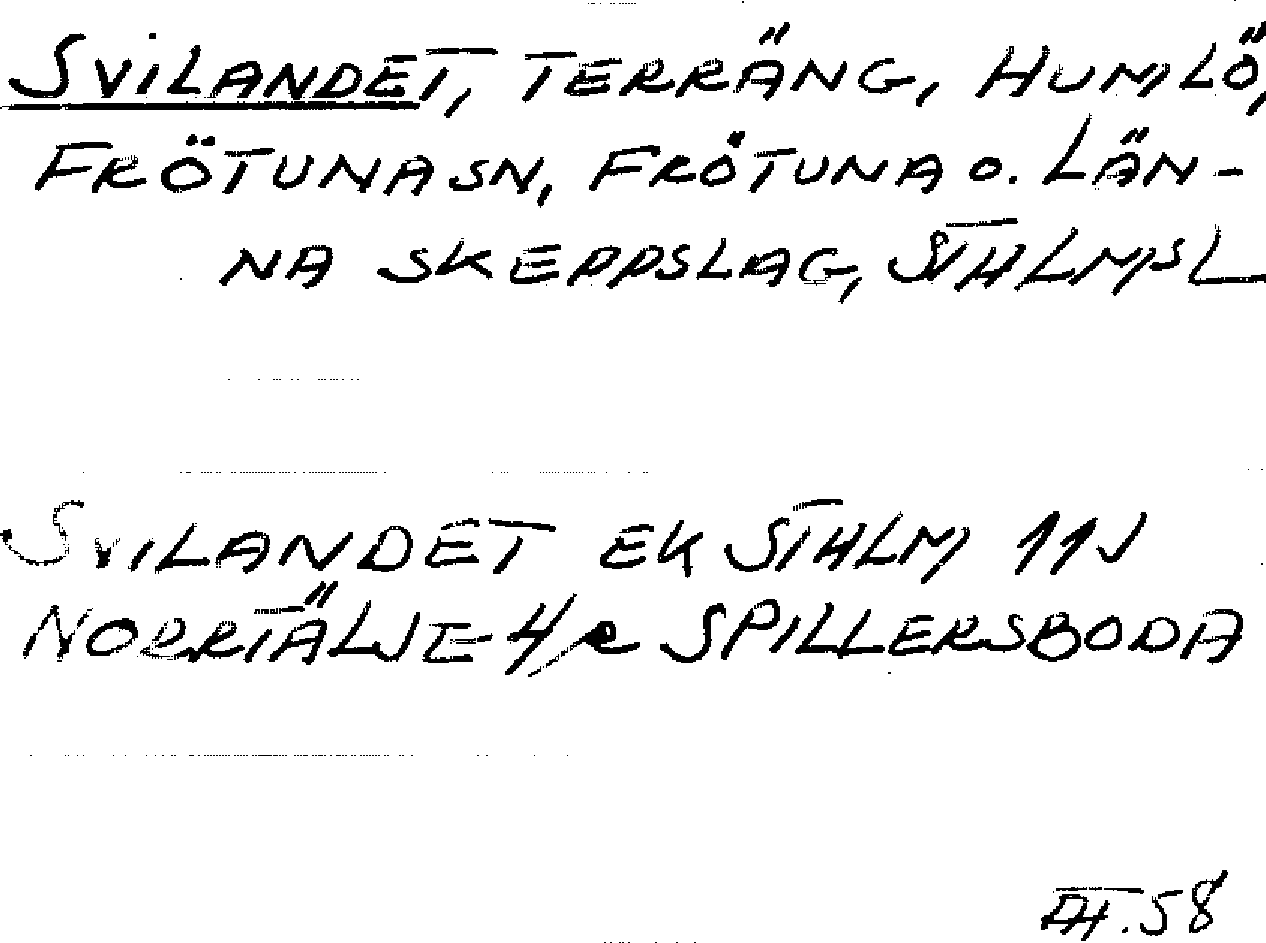 SVILANDET, TERRÄNG, HUMLÖ,
FRÖTUNA SN, FRÖTUNA O. LÄN-
NA SKEPPSLAG, STHLMSL
SVILANDET EK STHLM 11J
NORRTÄLJE 4/R SPILLERSBODA
58